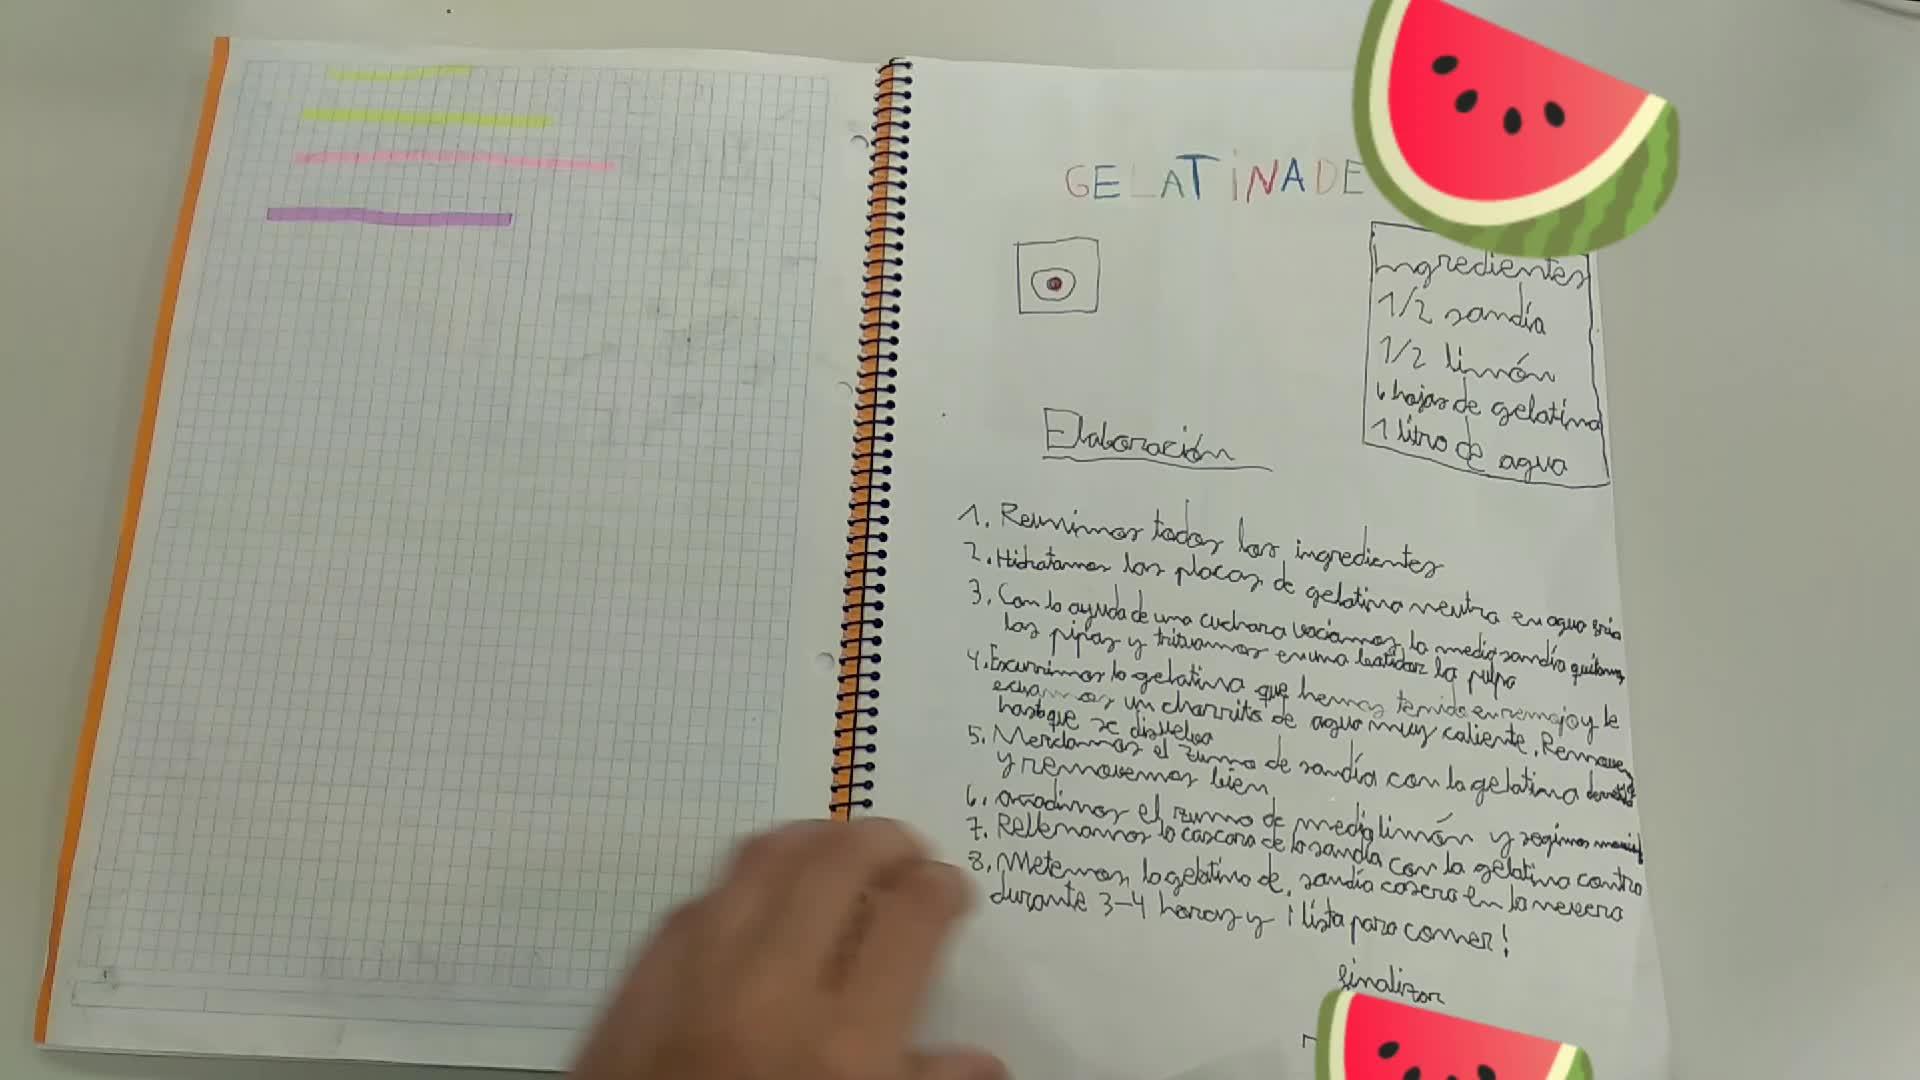 GELATINA DE
Ingredientes
1/2 sandía
1/2 limón
6 hojas de gelatina
1 litro de agua
Elaboración
1. Reunimos todos los ingredientes
2. Hidratamos las placas de gelatina neutra en agua fría
3. Con la ayuda de una cuchara vaciamos la media sandía quitamos
las pipas y trituamos en una batidor la pulpa
4. Escurrimos la gelatina que hemos tenido en remojo y le
echamos un chorrito de agua muy caliente. Remover
hastque se disuelva
5. Mezclamos el zumo de sandía con la gelatina
y removemos bien
6. añadimos el zumo de mediolimón y
7. Rellenamos la cascara de la sandía con la gelatina contro
8. Metemos la gelatina de sandía casera en la nevera
durante 3-4 horas y ¡lista para comer!
finalizar